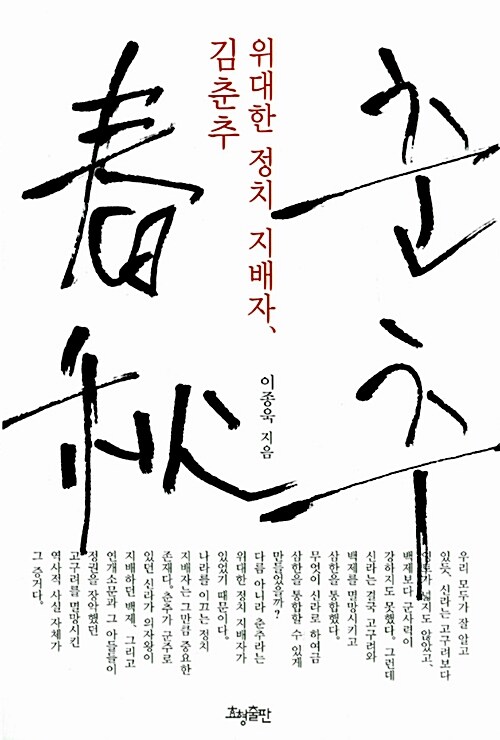 춘추
春秋
위대한 정치 지배자,
김춘추
이종욱 지음
우리 모두가 잘 알고
있듯, 신라는 고구려보다
영토가 넓지도 않았고,
백제보다 군사력이
강하지도 못했다. 그런데
신라는 결국 고구려와
백제를 멸망시키고
삼한을 통합했다.
무엇이 신라로 하여금
삼한을 통합할 수 있게
만들었을까?
다름 아니라 춘추라는
위대한 정치 지배자가
있었기 때문이다.
나라를 이끄는 정치
지배자는 그만큼 중요한
존재다. 춘추가 군주로
있던 신라가 의자왕이
지배하던 백제, 그리고
연개소문과 그 아들들이
정권을 장악했던
고구려를 멸망시킨
역사적 사실 자체가
그 증거다.
효형출판